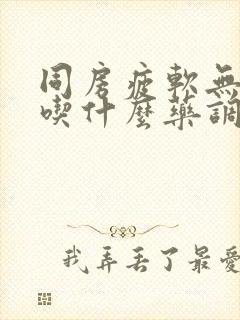 同房疲軟無
喫什麼藥調
我弄丟了最愛